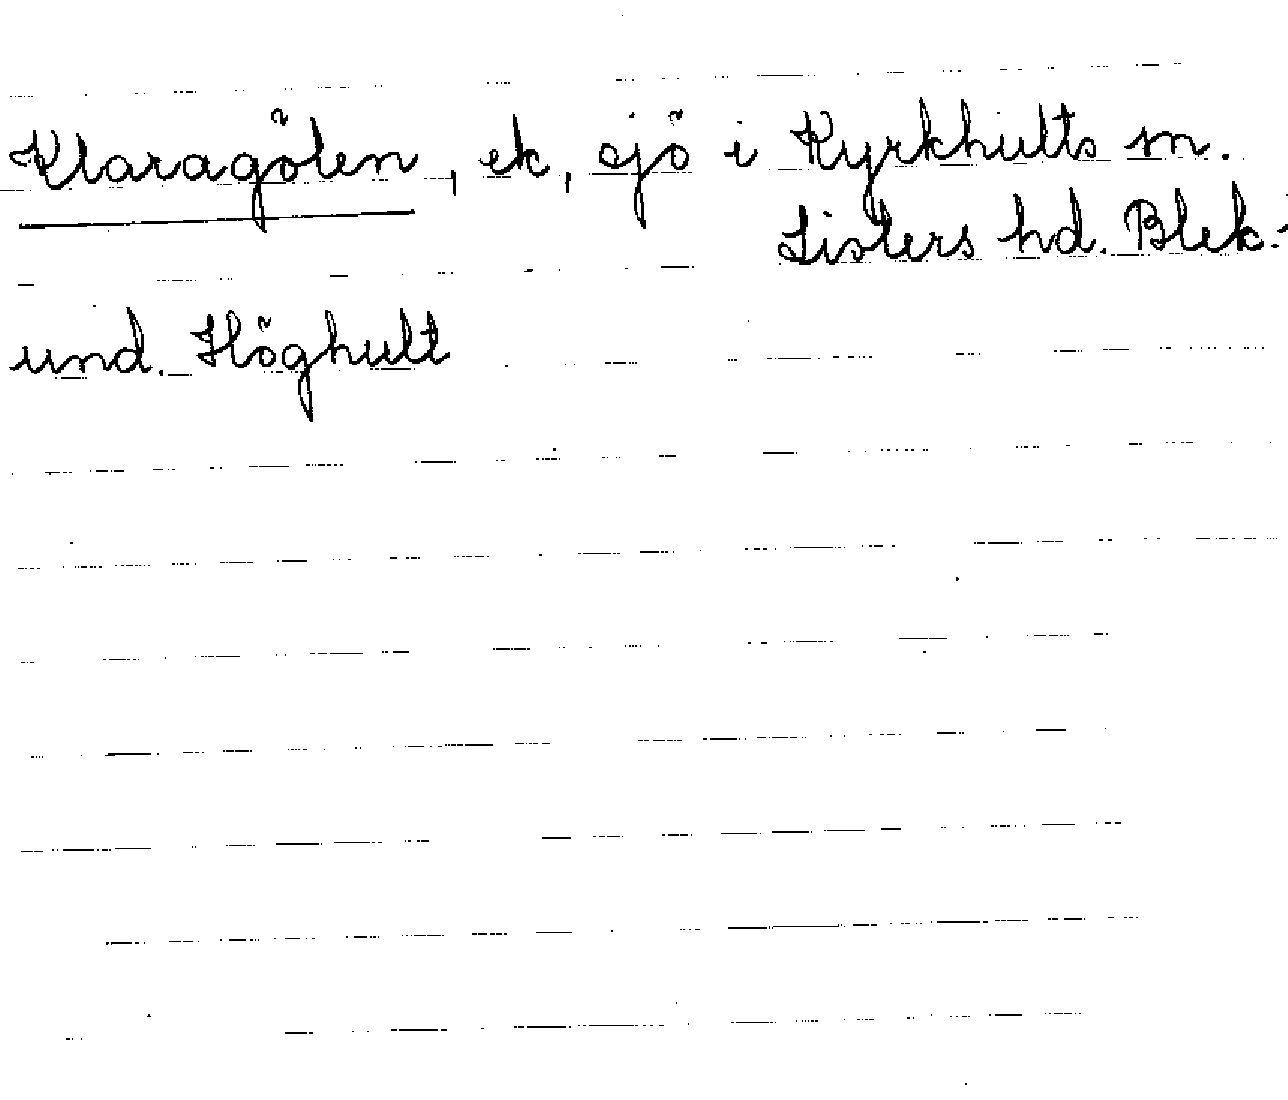 Klaragölen, ek, sjö i Kyrkhults sn.
Listers hd. Blek.
und. Höghult